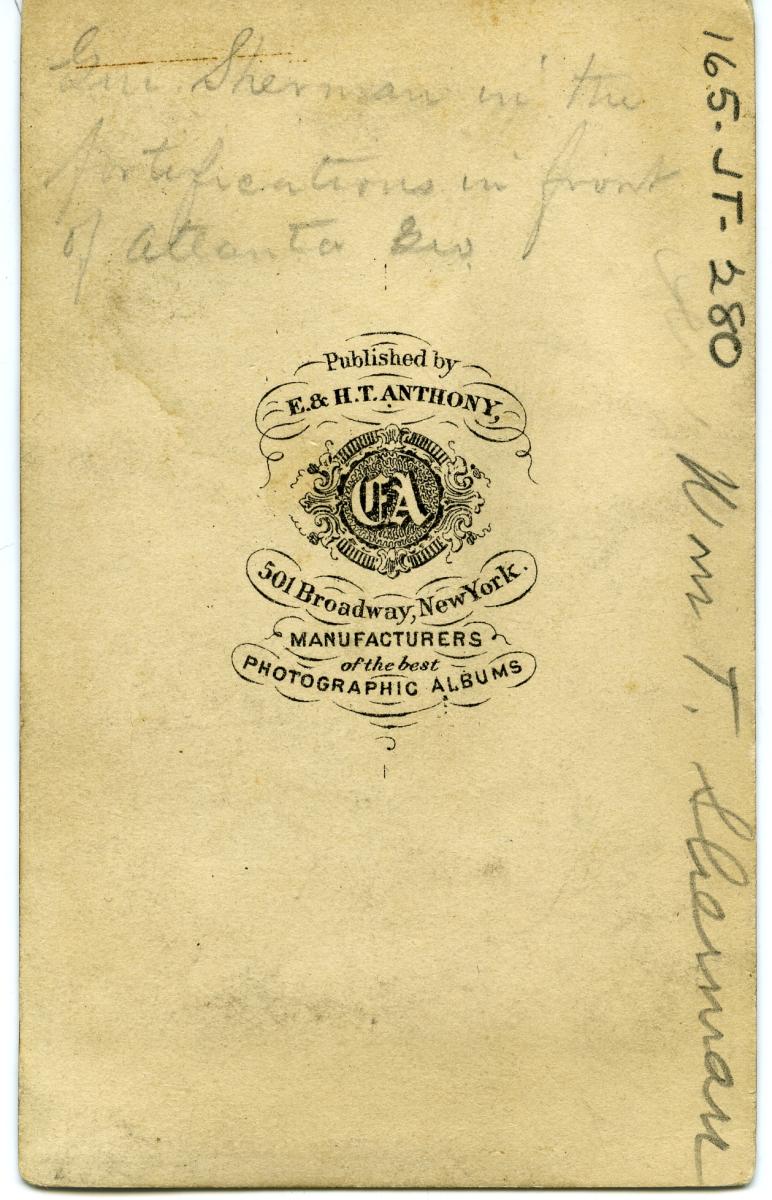 Gen. Sherman in the
fortifications in front
of Atlanta Geo
Published by
E. & H. T. ANTHONY,
EA
501 Broadway, New York.
MANUFACTURERS
of the best
PHOTOGRAPHIC ALBUMS
165-JT-280
Wm T. Sherman